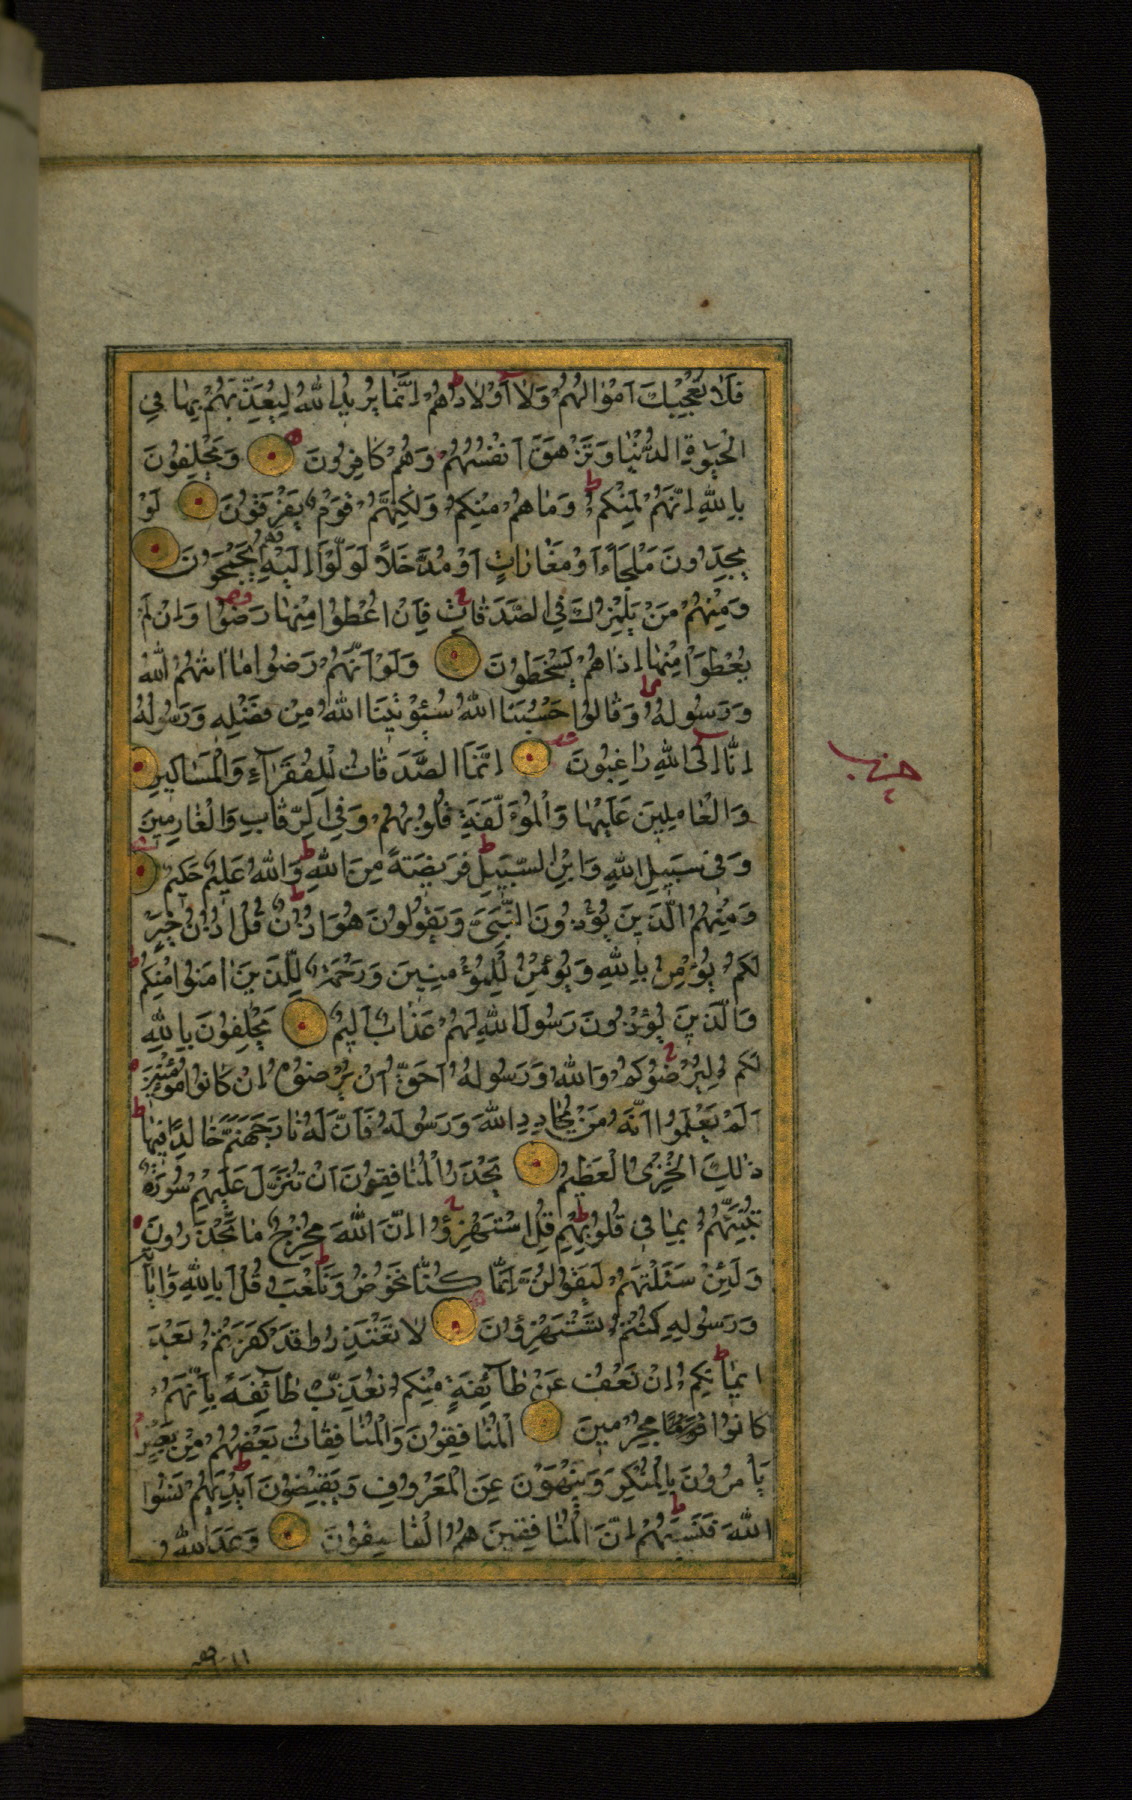 فَلَا تُعْجِبْكَ اَمْوٰالُهُمْ وَلٰا اَوْلٰادُهُمْ اِنَّمٰا يُرِيدُ اللهُ لِيُعَذِّبَهُمْ بِهٰا فِي
الْحَيٰوةِ الدُّنْيٰا وَتَزْهَقَ اَنْفُسُهُمْ وَهُمْ كٰافِرُونَ وَيَحْلِفُونَ
بِاللهِ اِنَّهُمْ لَمِنْكُمْ وَمٰا هُمْ مِنْكُمْ وَلٰكِنَّهُمْ قَوْمٌ يَفْرَقُونَ لَوْ
يَجِدُونَ مَلْجَاً اَوْ مَغٰارٰاتٍ اَوْ مُدَّخَلًا لَوَلَّوْا اِلَيْهِ وَهُمْ يَجْمَحُونَ
وَمِنْهُمْ مَنْ يَلْمِزُكَ فِي الصَّدَقٰاتِ فَاِنْ اُعْطُوا مِنْهٰا رَضُوا وَاِنْ لَمْ
يُعْطَوْا مِنْهٰا اِذٰا هُمْ يَسْخَطُونَ وَلَوْ اَنَّهُمْ رَضُوا مٰا اٰتٰهُمُ اللهُ
وَرَسُولُهُ وَقٰالُوا حَسْبُنَا اللهُ سَيُؤْتِينَا اللهُ مِنْ فَضْلِهِ وَرَسُولُهُ
اِنّٰا اِلَى اللهِ رٰاغِبُونَ اِنَّمَا الصَّدَقٰاتُ لِلْفُقَرٰآءِ وَالْمَسٰاكِينِ
حزب
وَالْعٰامِلِينَ عَلَيْهٰا وَالْمُؤَلَّفَةِ قُلُوبُهُمْ وَفِي الرِّقٰابِ وَالْغٰارِمِينَ
وَفِي سَبِيلِ اللهِ وَابْنِ السَّبِيلِ فَرِيضَةً مِنَ اللهِ وَاللهُ عَلِيمٌ حَكِيمٌ
وَمِنْهُمُ الَّذِينَ يُؤْذُونَ النَّبِيَّ وَيَقُولُونَ هُوَ اُذُنٌ قُلْ اُذُنُ خَيْرٍ
لَكُمْ يُؤْمِنُ بِاللهِ وَيُؤْمِنُ لِلْمُؤْمِنِينَ وَرَحْمَةٌ لِلَّذِينَ اٰمَنُوا مِنْكُمْ
وَالَّذِينَ يُؤْذُونَ رَسُولَ اللهِ لَهُمْ عَذٰابٌ اَلِيمٌ يَحْلِفُونَ بِاللهِ
لَكُمْ لِيُرْضُوكُمْ وَاللهُ وَرَسُولُهُ اَحَقُّ اَنْ يُرْضُوهُ اِنْ كٰانُوا مُؤْمِنِينَ
اَلَمْ يَعْلَمُوا اَنَّهُ مَنْ يُحٰادِدِ اللهَ وَرَسُولَهُ فَاَنَّ لَهُ نٰارَ جَهَنَّمَ خٰالِدًا فِيهٰا
ذٰلِكَ الْخِزْيُ الْعَظِيمُ يَحْذَرُ الْمُنٰافِقُونَ اَنْ تُنَزَّلَ عَلَيْهِمْ سُورَةٌ
تُنَبِّئُهُمْ بِمٰا فِي قُلُوبِهِمْ قُلِ اسْتَهْزِؤُا اِنَّ اللهَ مُخْرِجٌ مٰا تَحْذَرُونَ
وَلَئِنْ سَئَلْتَهُمْ لَيَقُولُنَّ اِنَّمٰا كُنّٰا نَخُوضُ وَنَلْعَبُ قُلْ اَبِاللهِ وَاٰيٰاتِهِ
وَرَسُولِهِ كُنْتُمْ تَسْتَهْزِؤُنَ لٰا تَعْتَذِرُوا قَدْ كَفَرْتُمْ بَعْدَ
اِيمٰانِكُمْ اِنْ نَعْفُ عَنْ طٰآئِفَةٍ مِنْكُمْ نُعَذِّبْ طٰآئِفَةً بِاَنَّهُمْ
كٰانُوا مُجْرِمِينَ اَلْمُنٰافِقُونَ وَالْمُنٰافِقٰاتُ بَعْضُهُمْ مِنْ بَعْضٍ
يَاْمُرُونَ بِالْمُنْكَرِ وَيَنْهَوْنَ عَنِ الْمَعْرُوفِ وَيَقْبِضُونَ اَيْدِيَهُمْ نَسُوا
اللهَ فَنَسِيَهُمْ اِنَّ الْمُنٰافِقِينَ هُمُ الْفٰاسِقُونَ وَعَدَ اللهُ